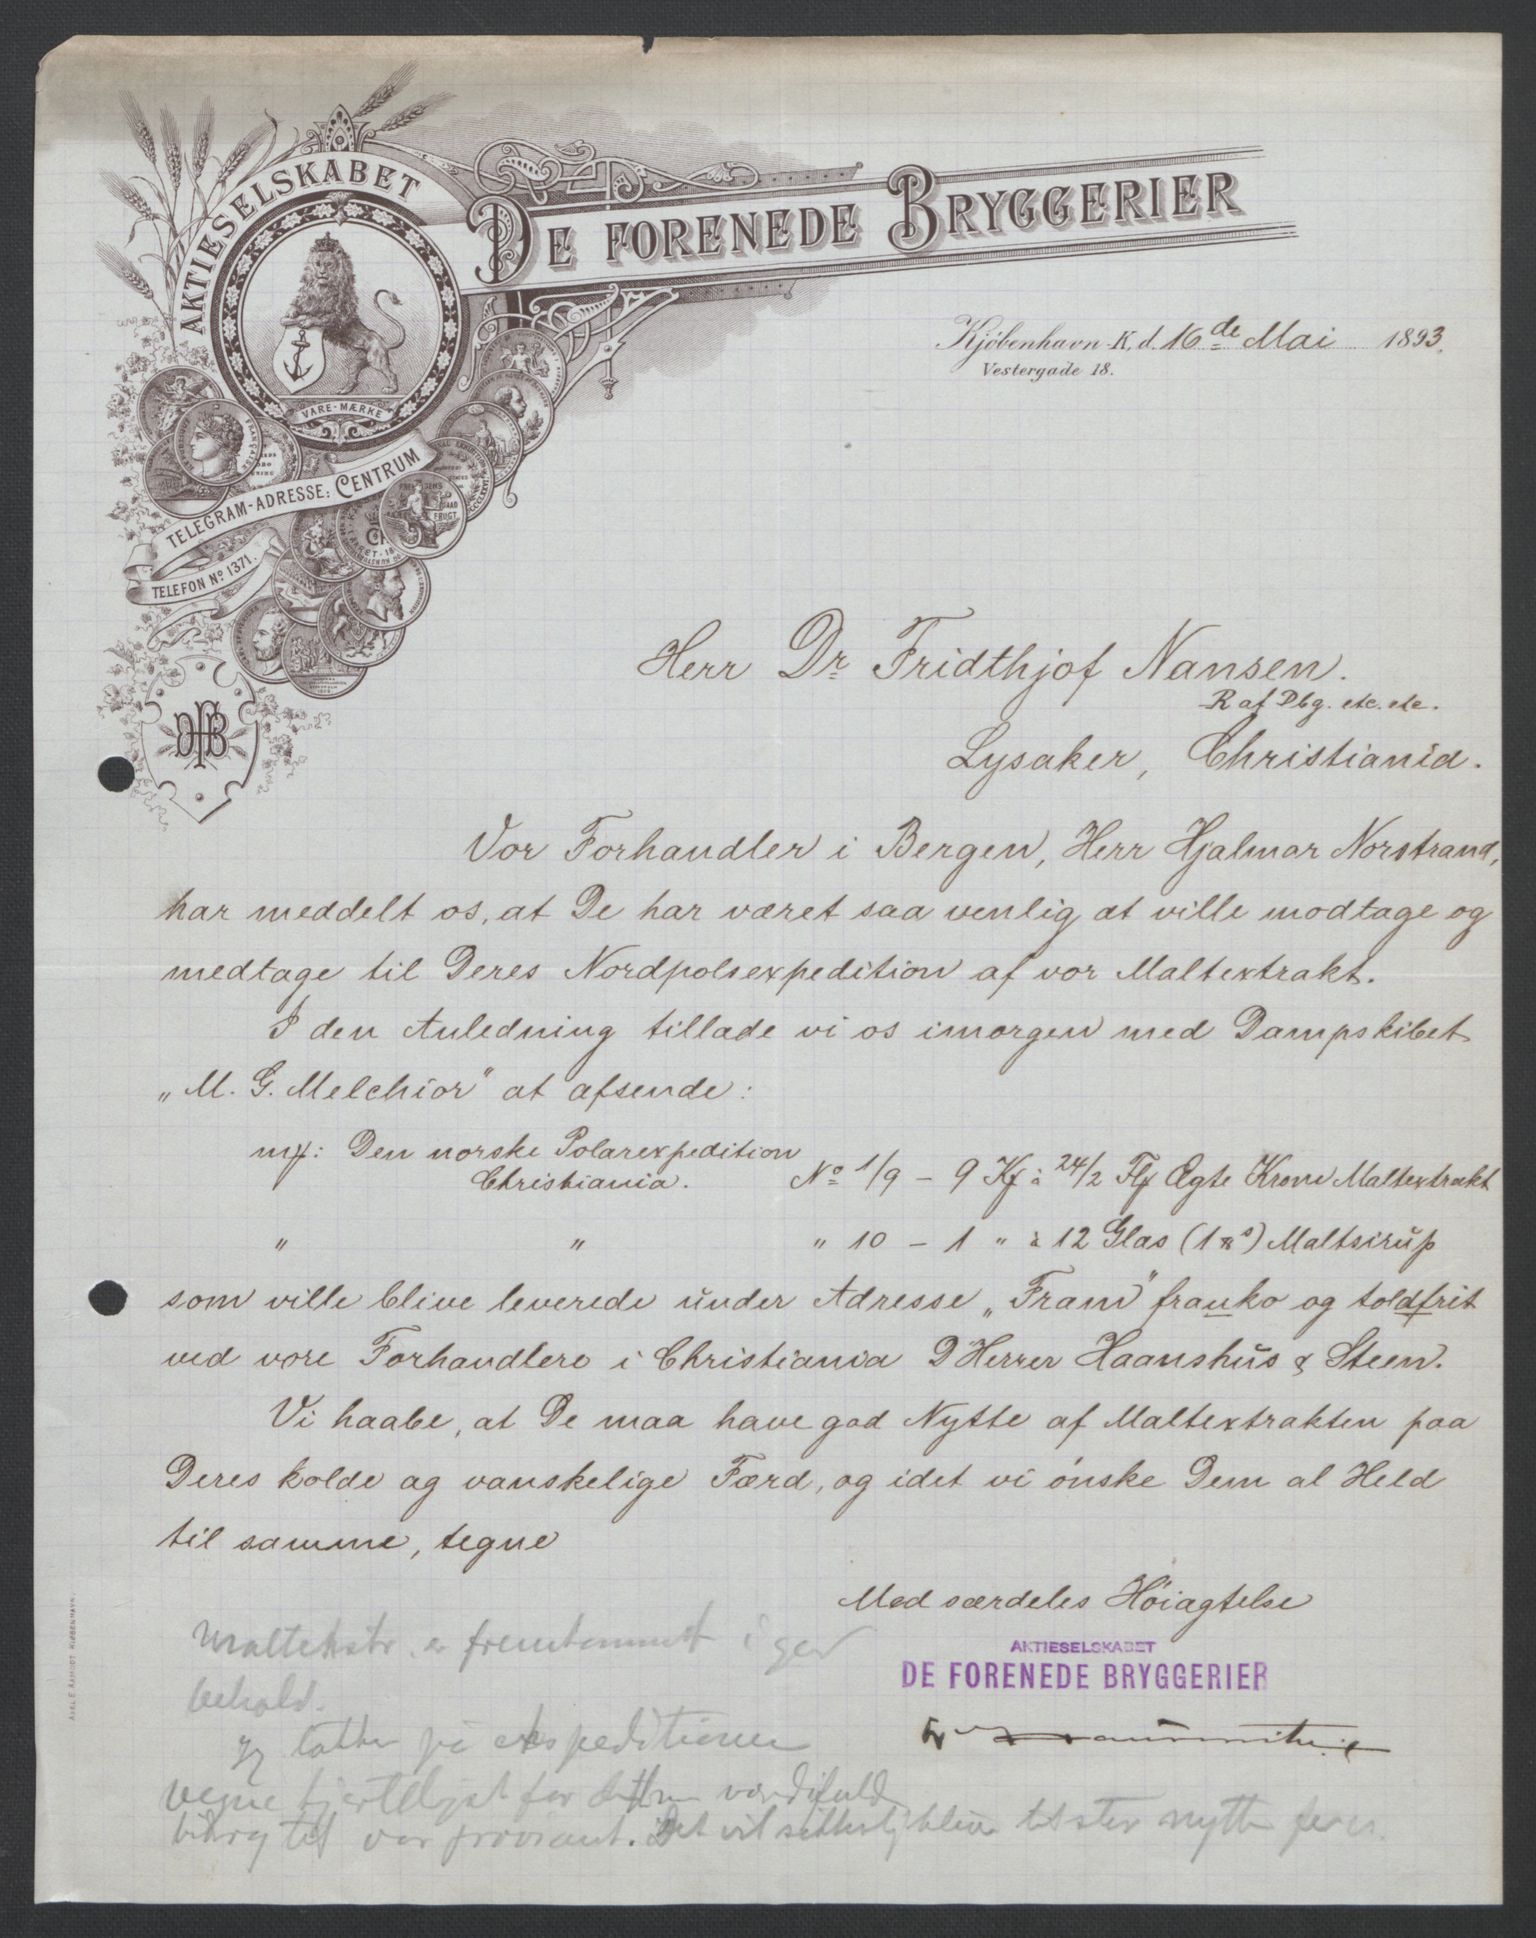 AKTIESELSKABET
DE FORENEDE BRYGGERIER
VARE-MÆRKE
TELEGRAM-ADRESSE: CENTRUM
TELEFON No. 1371.
DFB
Kjöbenhavn-K, d. 16de Mai 1893.
Vestergade 18.
Herr Dr Fridthjof Nansen.
R af Dbg. etc. etc.
Lysaker, Christiania.
Vor Forhandler i Bergen, Herr Hjalmar Norstrand,
har meddelt os, at De har været saa venlig at ville modtage og
medtage til Deres Nordpolsexpedition af vor Maltextrakt.
I den Anledning tillade vi os imorgen med Dampskibet
„M. G. Melchior" at afsende:
mf: Den norske Polarexpedition
Christiania. No 1/9 – 9 Kf à 24/2 Flf Ægte Krone Maltextrakt
" " " 10 – 1 " à 12 Glas (1 s) Maltsirup
som ville blive leverede under Adresse „Fram" franko og toldfrit
ved vore Forhandlere i Christiania DHerrer Haanshus & Steen.
Vi haabe, at De maa have god Nytte af Maltextrakten paa
Deres kolde og vanskelige Færd, og idet vi ønske Dem al Held
til samme, tegne
Med særdeles Høiagtelse
AKTIESELSKABET
DE FORENEDE BRYGGERIER
Maltekstr. er fremkommet i god
behold.
Jeg takker på ekspeditionens
vegne hjerteligst for dette værdifulde
bidrag til vor proviant. Det vil sikkerlig blive til stor nytte for os.
AXEL E. AAMODT KJØBENHAVN.